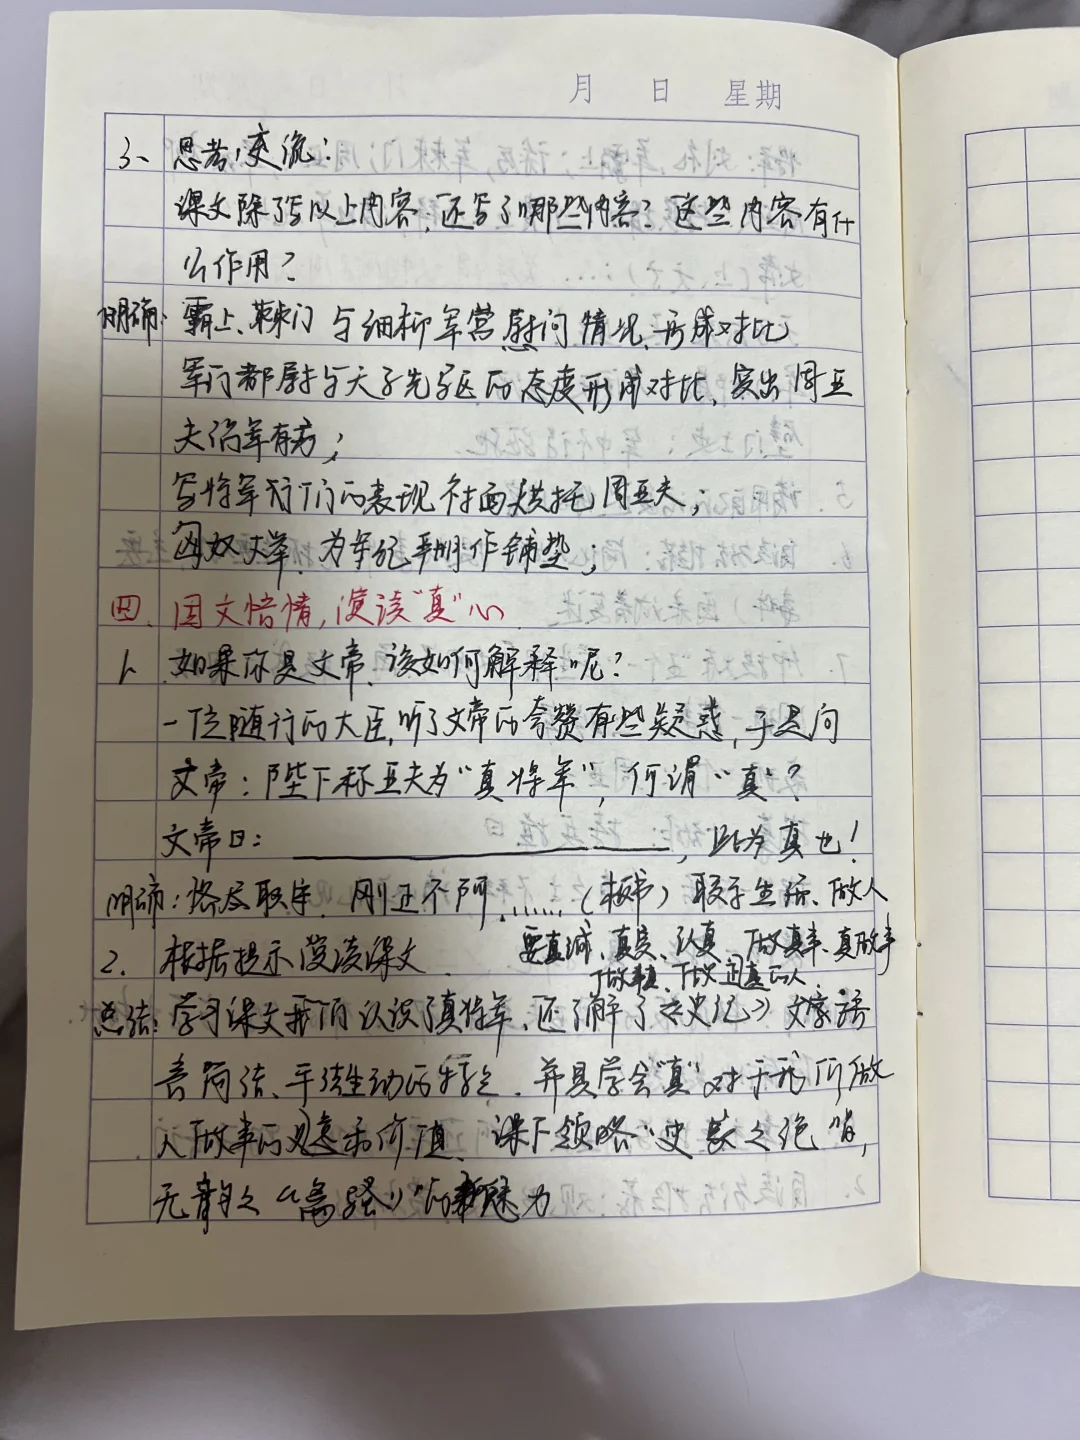 月 日 星期
3、思考,交流:
课文除了写以上内容,还写了哪些内容?这些内容有什
么作用?
明确:霸上、棘门与细柳军营慰问情况,形成对比
军门都尉与天子先驱的态度形成对比,突出周亚
夫治军有方;
写将军对的表现衬托周亚夫;
匈奴大举,为军纪严明作铺垫;
四、因文悟情,演读“真”心
1、如果你是文帝,该如何解释呢?
一位随行的大臣,听了文帝的夸赞有些疑惑,于是问
文帝:陛下称亚夫为“真将军”,何谓“真”?
文帝曰: ,此为真也!
明确:恪尽职守、刚正不阿……(板书)联系生活、做人
要真诚、真实、认真、做真事、真做事
2、根据提示演读课文
总结:学习课文我们认识了真将军,还了解了《史记》语
言简洁、生动的特点、并且学会“真”对于我们做
人做事的意和价值、课下领略“史家之绝唱,
无韵之《离骚》”的魅力